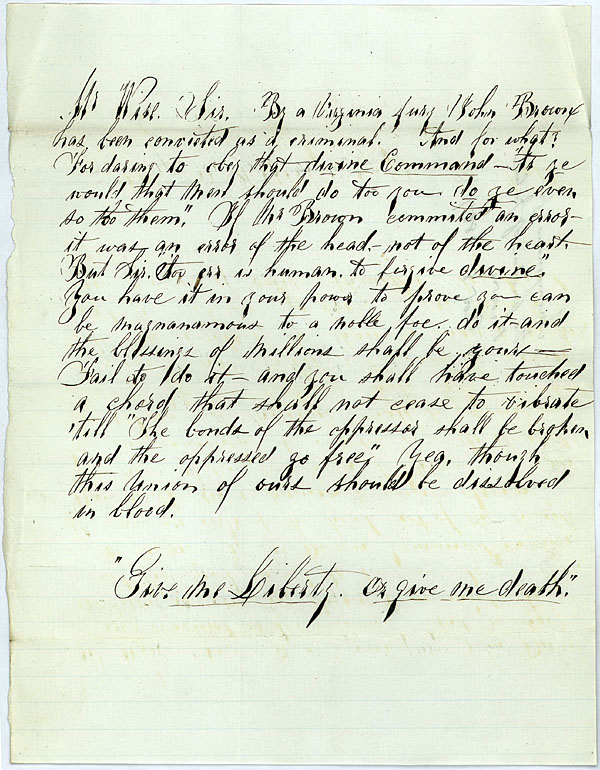 Mr Wise. Sir. By a Virginia jury John Brown
has been convicted as a criminal. And for what?
For daring to obey that divine Command — "As ye
would that men should do too you do ye even
so too them". If Mr Brown commited an error —
it was an error of the head — not of the heart.
But Sir. "Too err is human. to forgive divine".
You have it in your power to prove you can
be magnanamous to a noble foe. do it — and
the blessings of Millions shall be yours —
Fail to do it — and you shall have touched
a chord that shall not cease to vibrate
'till "The bonds of the oppressor shall be broken
and the oppressed go free". Yea, though
this Union of ours should be dissolved
in blood.
"Give me Liberty. or give me death".